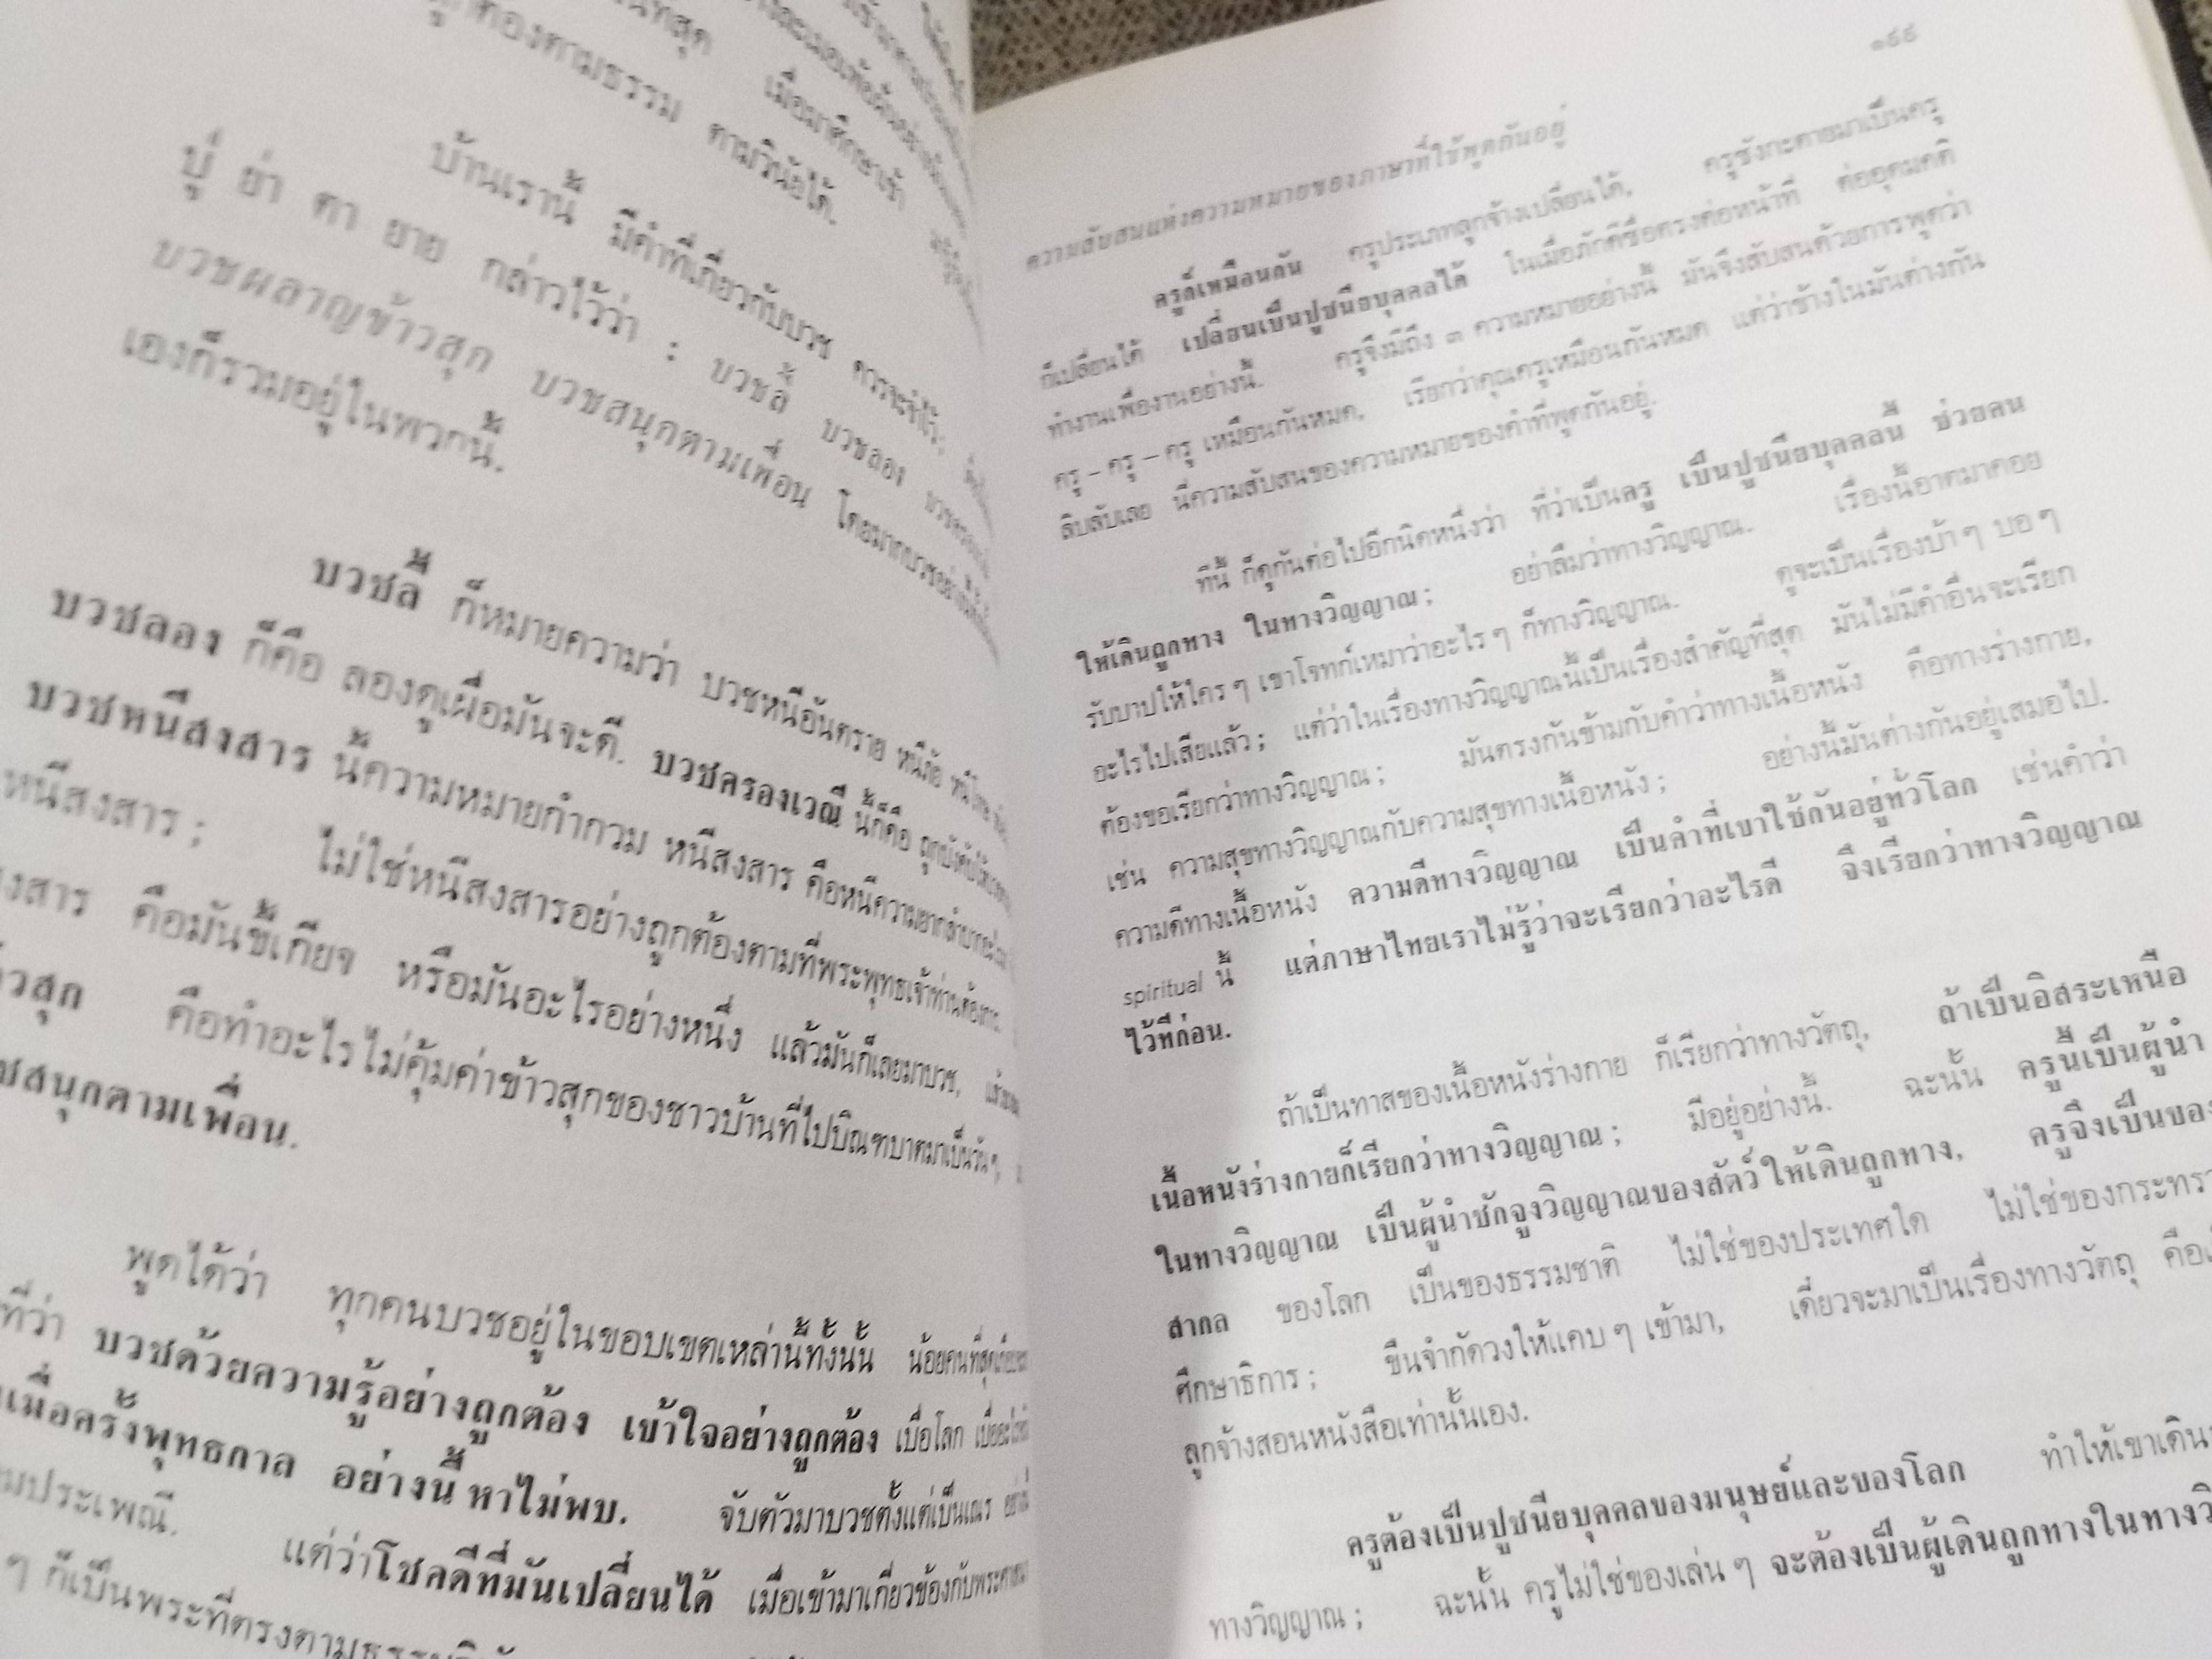 ที่สุด เมื่อมาศึกษาเข้า
ถูกต้องตามธรรม ตามวินัยได้.
บ้านเรานี้ มีคำที่เกี่ยวกับบวช ควรจะจำไว้;
ปู่ ย่า ตา ยาย กล่าวไว้ว่า : บวชลี้ บวชลอง
บวชผลาญข้าวสุก บวชสนุกตามเพื่อน โดยมากบวชอย่างนี้
เองก็รวมอยู่ในพวกนี้.
บวชลี้ ก็หมายความว่า บวชหนีอันตราย หนีภัย หนีโทษ
บวชลอง ก็คือ ลองดูเผื่อมันจะดี. บวชครองเวณี นี้ก็คือ ถูกบังคับให้บวช
บวชหนีสงสาร นี้ความหมายกำกวม หนีสงสาร คือหนีความยากลำบาก
หนีสงสาร ; ไม่ใช่หนีสงสารอย่างถูกต้องตามที่พระพุทธเจ้าท่านต้องการ.
สงสาร คือมันขี้เกียจ หรือมันอะไรอย่างหนึ่ง แล้วมันก็เลยมาบวช.
คือทำอะไรไม่คุ้มค่าข้าวสุกของชาวบ้านที่ไปบิณฑบาตมาเป็นวัน ๆ
สนุกตามเพื่อน.
พูดได้ว่า ทุกคนบวชอยู่ในขอบเขตเหล่านี้ทั้งนั้น น้อยคนที่สุด
ที่ว่า บวชด้วยความรู้อย่างถูกต้อง เข้าใจอย่างถูกต้อง เบื่อโลก
เมื่อครั้งพุทธกาล อย่างนี้หาไม่พบ. จับตัวมาบวชตั้งแต่เป็นเณร
ประเพณี. แต่ว่าโชคดีที่มันเปลี่ยนได้ เมื่อเข้ามาเกี่ยวข้องกับพระศาสนา
ๆ ก็เป็นพระที่ตรงตามธรรม
๑๙๙
ความสับสนแห่งความหมายของภาษาที่ใช้พูดกันอยู่
ครูก็เหมือนกัน ครูประเภทลูกจ้างเปลี่ยนได้, ครูซังกะตายมาเป็นครู
ก็เปลี่ยนได้ เปลี่ยนเป็นปูชนียบุคคลได้ ในเมื่อภักดีซื่อตรงต่อหน้าที่ ต่ออุดมคติ
ทำงานเพื่องานอย่างนี้. ครูจึงมีถึง ๓ ความหมายอย่างนี้ มันจึงสับสนด้วยการพูดว่า
ครู – ครู – ครู เหมือนกันหมด, เรียกว่าคุณครูเหมือนกันหมด แต่ว่าข้างในมันต่างกัน
ลิบลับเลย นี่ความสับสนของความหมายของคำที่พูดกันอยู่.
ทีนี้ ก็ดูกันต่อไปอีกนิดหนึ่งว่า ที่ว่าเป็นครู เป็นปูชนียบุคคลนี้ ช่วยคน
ให้เดินถูกทาง ในทางวิญญาณ ; อย่าลืมว่าทางวิญญาณ. เรื่องนี้อาตมาคอย
รับบาปให้ใคร ๆ เขาโจทก์เหมาว่าอะไร ๆ ก็ทางวิญญาณ. ดูจะเป็นเรื่องบ้า ๆ บอ ๆ
อะไรไปเสียแล้ว ; แต่ว่าในเรื่องทางวิญญาณนี้เป็นเรื่องสำคัญที่สุด มันไม่มีคำอื่นจะเรียก
ต้องขอเรียกว่าทางวิญญาณ ; มันตรงกันข้ามกับคำว่าทางเนื้อหนัง คือทางร่างกาย,
เช่น ความสุขทางวิญญาณกับความสุขทางเนื้อหนัง ; อย่างนี้มันต่างกันอยู่เสมอไป.
ความดีทางเนื้อหนัง ความดีทางวิญญาณ เป็นคำที่เขาใช้กันอยู่ทั่วโลก เช่นคำว่า
spiritual นี้ แต่ภาษาไทยเราไม่รู้ว่าจะเรียกว่าอะไรดี จึงเรียกว่าทางวิญญาณ
ไว้ทีก่อน.
ถ้าเป็นทาสของเนื้อหนังร่างกาย ก็เรียกว่าทางวัตถุ, ถ้าเป็นอิสระเหนือ
เนื้อหนังร่างกายก็เรียกว่าทางวิญญาณ ; มีอยู่อย่างนี้. ฉะนั้น ครูนี้เป็นผู้นำ
ในทางวิญญาณ เป็นผู้นำชักจูงวิญญาณของสัตว์ให้เดินถูกทาง, ครูจึงเป็นของ
สากล ของโลก เป็นของธรรมชาติ ไม่ใช่ของประเทศใด ไม่ใช่ของกระทรวง
ศึกษาธิการ ; ขืนจำกัดวงให้แคบ ๆ เข้ามา, เดี๋ยวจะมาเป็นเรื่องทางวัตถุ คือ
ลูกจ้างสอนหนังสือเท่านั้นเอง.
ครูต้องเป็นปูชนียบุคคลของมนุษย์และของโลก ทำให้เขาเดิน
ทางวิญญาณ ; ฉะนั้น ครูไม่ใช่ของเล่น ๆ จะต้องเป็นผู้เดินถูกทางในทาง